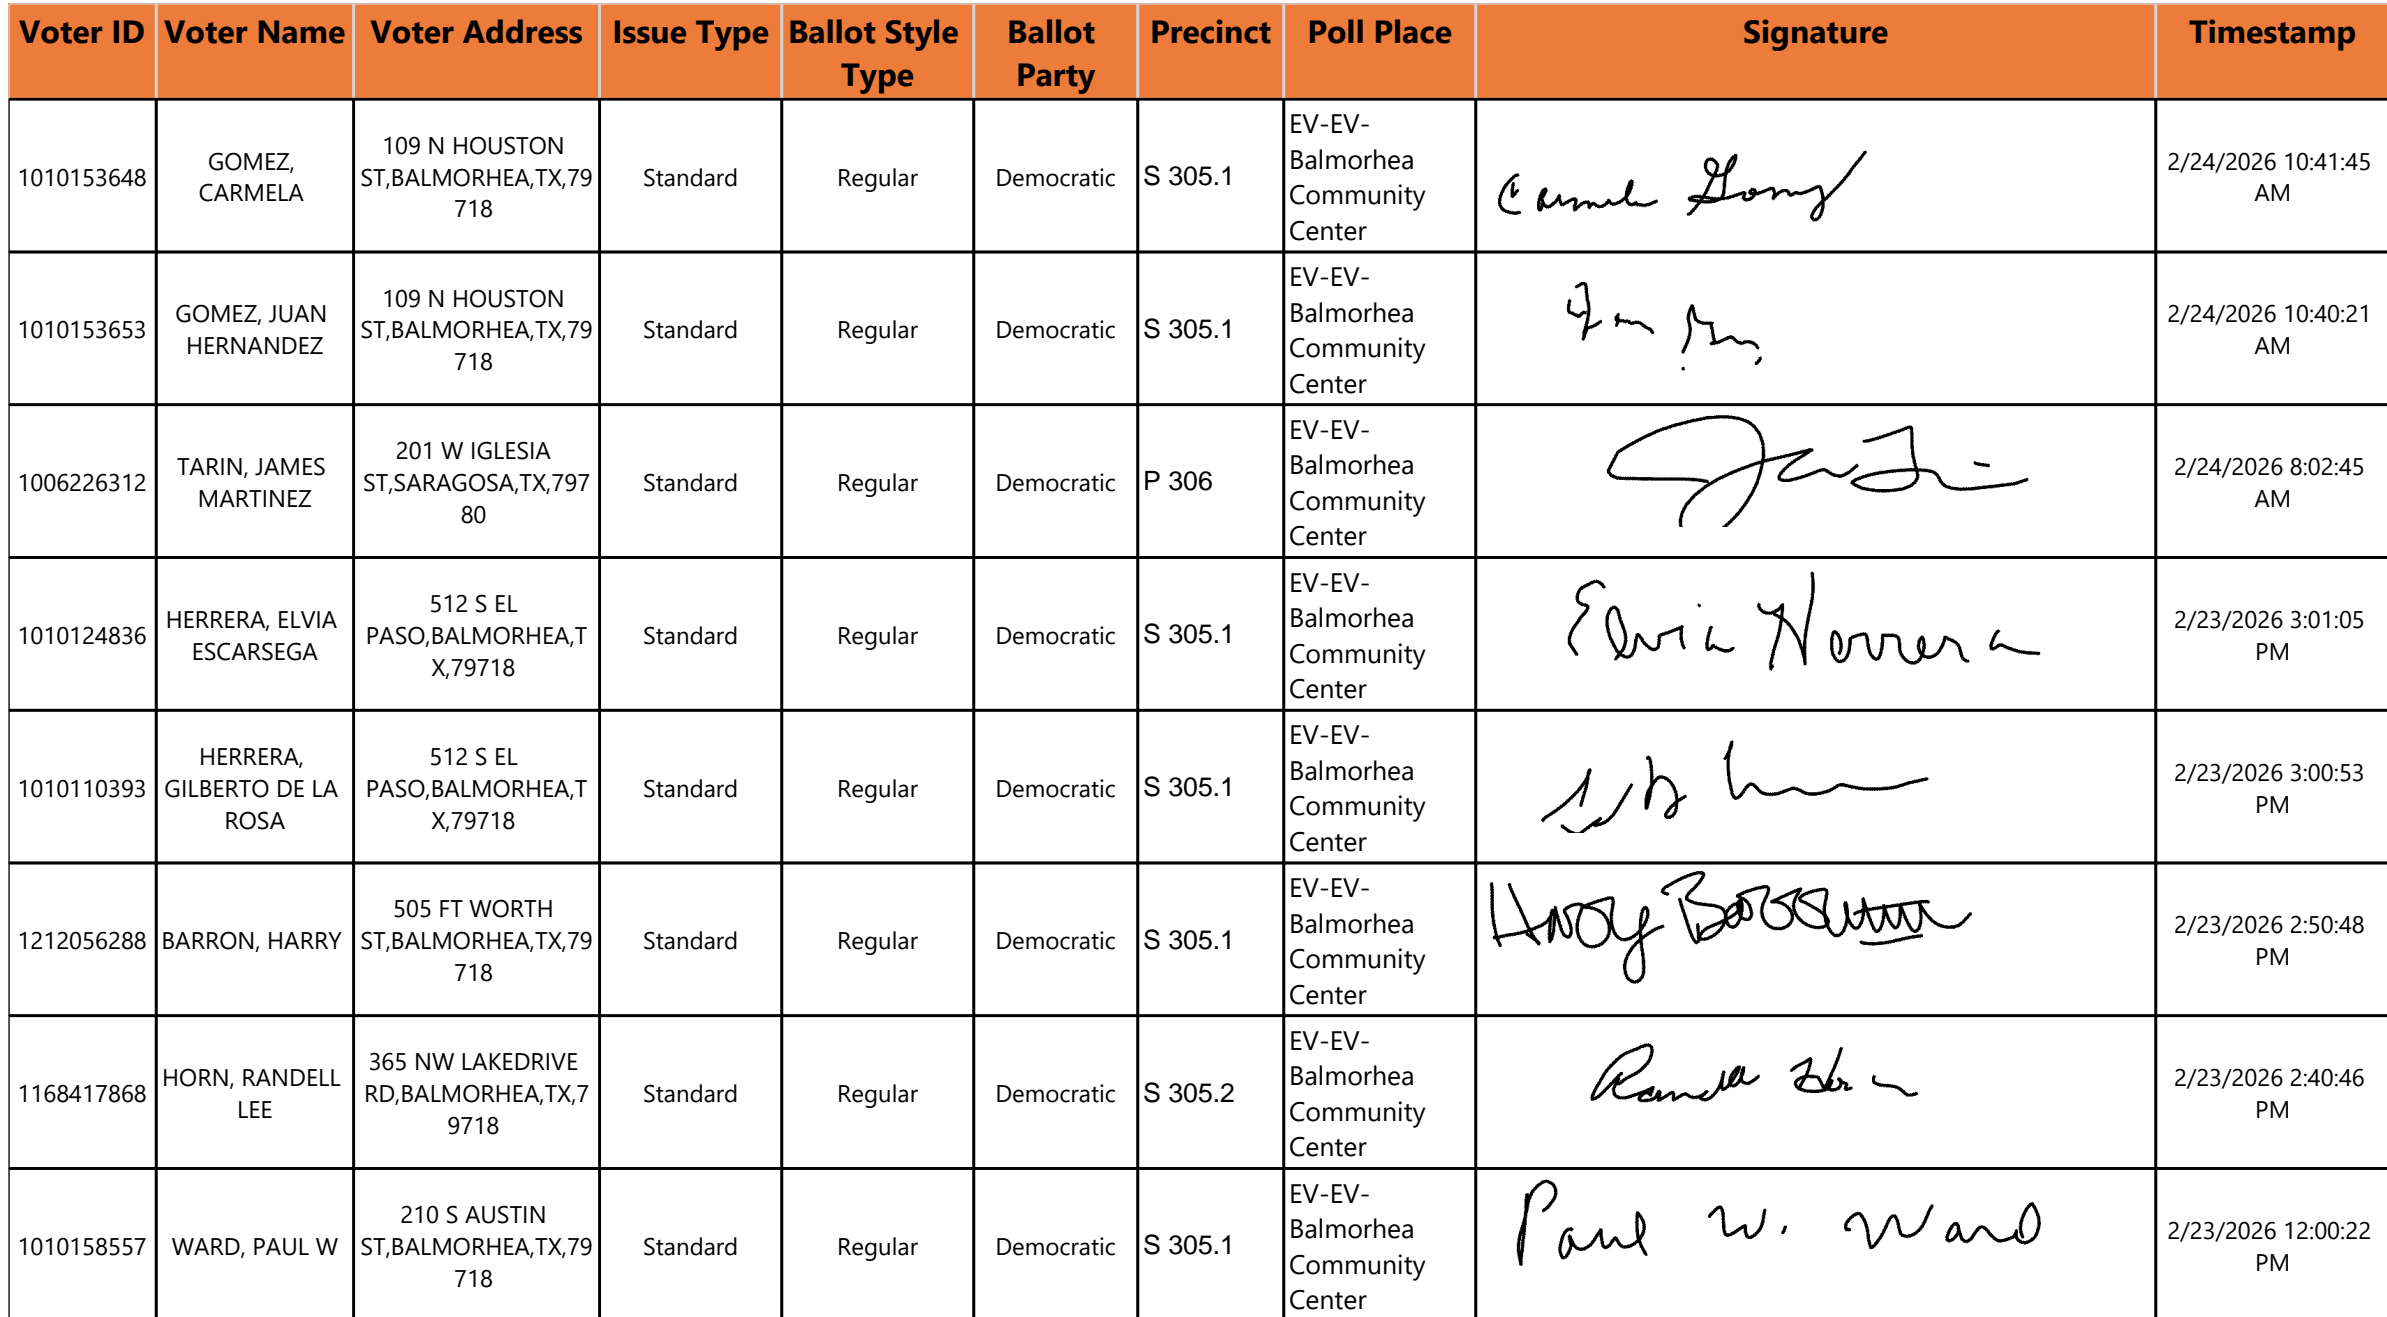 Voter ID Voter Name Voter Address Issue Type Ballot Style Type Ballot Party Precinct Poll Place Signature Timestamp
1010153648 GOMEZ, CARMELA 109 N HOUSTON ST,BALMORHEA,TX,79718 Standard Regular Democratic S 305.1 EV-EV-Balmorhea Community Center Carmela Gomez 2/24/2026 10:41:45 AM
1010153653 GOMEZ, JUAN HERNANDEZ 109 N HOUSTON ST,BALMORHEA,TX,79718 Standard Regular Democratic S 305.1 EV-EV-Balmorhea Community Center 2/24/2026 10:40:21 AM
1006226312 TARIN, JAMES MARTINEZ 201 W IGLESIA ST,SARAGOSA,TX,79780 Standard Regular Democratic P 306 EV-EV-Balmorhea Community Center 2/24/2026 8:02:45 AM
1010124836 HERRERA, ELVIA ESCARSEGA 512 S EL PASO,BALMORHEA,TX,79718 Standard Regular Democratic S 305.1 EV-EV-Balmorhea Community Center Elvia Herrera 2/23/2026 3:01:05 PM
1010110393 HERRERA, GILBERTO DE LA ROSA 512 S EL PASO,BALMORHEA,TX,79718 Standard Regular Democratic S 305.1 EV-EV-Balmorhea Community Center 2/23/2026 3:00:53 PM
1212056288 BARRON, HARRY 505 FT WORTH ST,BALMORHEA,TX,79718 Standard Regular Democratic S 305.1 EV-EV-Balmorhea Community Center Harry 2/23/2026 2:50:48 PM
1168417868 HORN, RANDELL LEE 365 NW LAKEDRIVE RD,BALMORHEA,TX,79718 Standard Regular Democratic S 305.2 EV-EV-Balmorhea Community Center 2/23/2026 2:40:46 PM
1010158557 WARD, PAUL W 210 S AUSTIN ST,BALMORHEA,TX,79718 Standard Regular Democratic S 305.1 EV-EV-Balmorhea Community Center Paul W. Ward 2/23/2026 12:00:22 PM